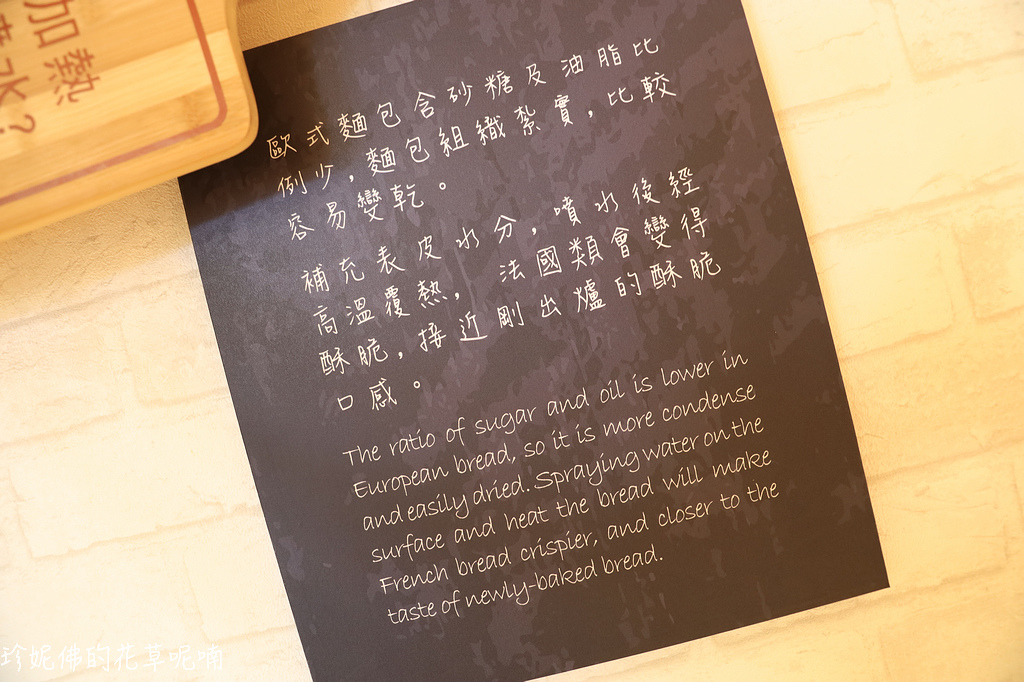 加熱
水?
歐式麵包含砂糖及油脂比
例少,麵包組織紮實,比較
容易變乾。
補充表皮水分,噴水後經
高溫覆熱,法國類會變得
酥脆,接近剛出爐的酥脆
口感。
The ratio of sugar and oil is lower in
European bread, so it is more condense
and easily dried. Spraying water on the
surface and heat the bread will make
French bread crispier, and closer to the
taste of newly-baked bread.
珍妮佛的花草呢喃